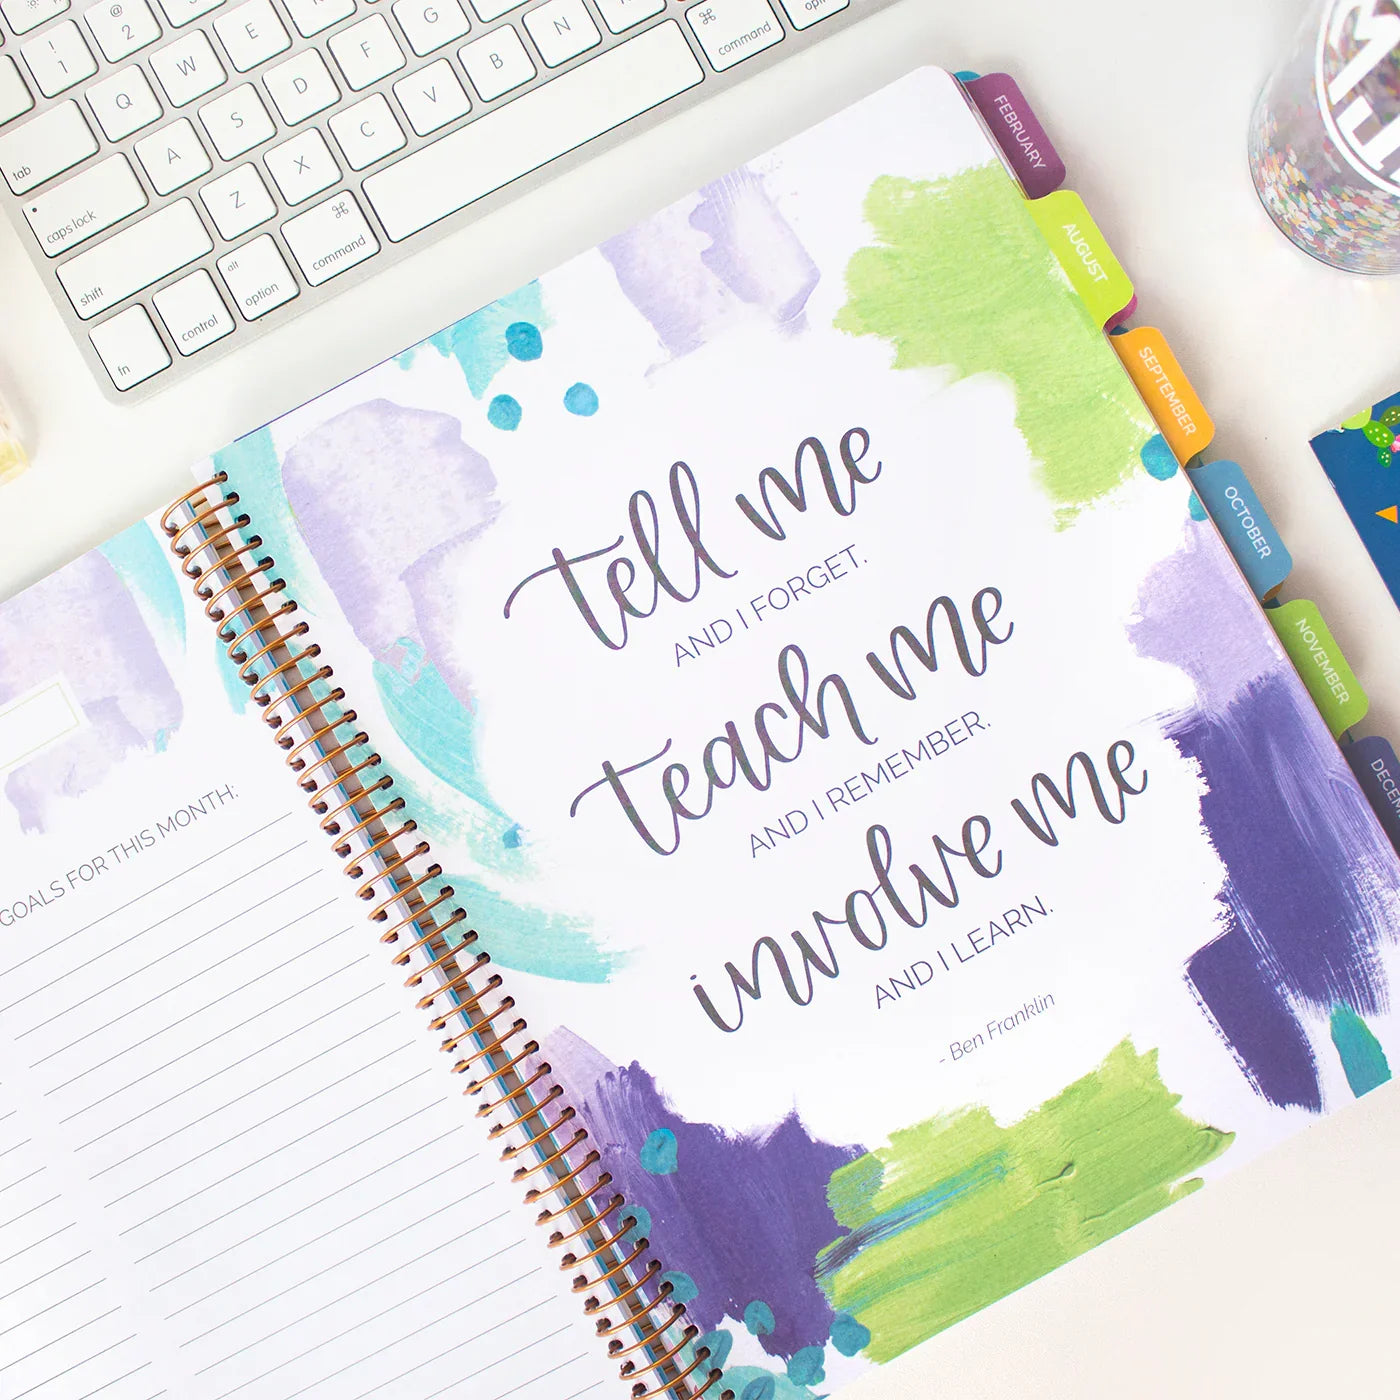 ! 1
@ 2
W
E
F
G
option
Q
S
D
V
B
⌘ command
tab
A
X
C
caps lock
Z
⌘ command
shift
alt option
control
fn
FEBRUARY
AUGUST
SEPTEMBER
OCTOBER
NOVEMBER
tell me
AND I FORGET.
teach me
AND I REMEMBER.
involve me
AND I LEARN.
- Ben Franklin
GOALS FOR THIS MONTH: